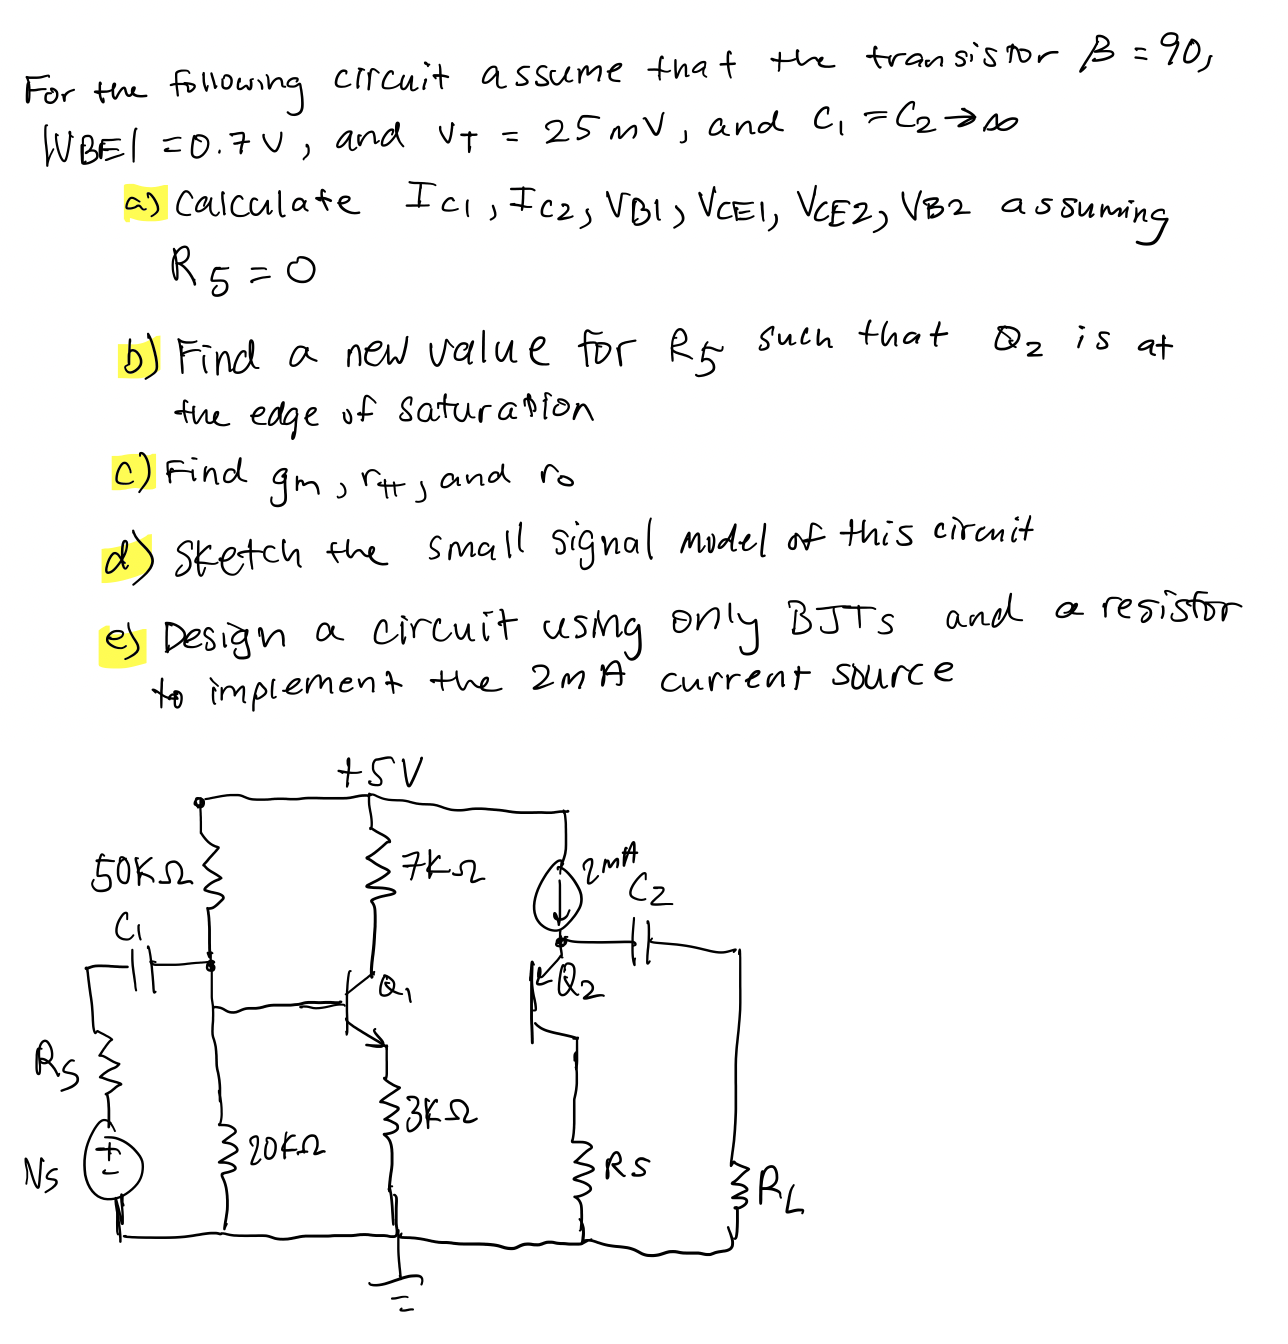 For the following circuit assume that the transistor β = 90,
|VBE| = 0.7 V, and VT = 25 mV, and C1 = C2 → ∞
a) Calculate IC1, IC2, VB1, VCE1, VCE2, VB2 assuming
R5 = 0
b) Find a new value for R5 such that Q2 is at
the edge of saturation
c) Find gm, rπ, and ro
d) Sketch the small signal model of this circuit
e) Design a circuit using only BJTs and a resistor
to implement the 2mA current source
+5V
50KΩ
7KΩ
2mA
C1
C2
Q1
Q2
RS
3KΩ
20KΩ
R5
RL
+
-
VS